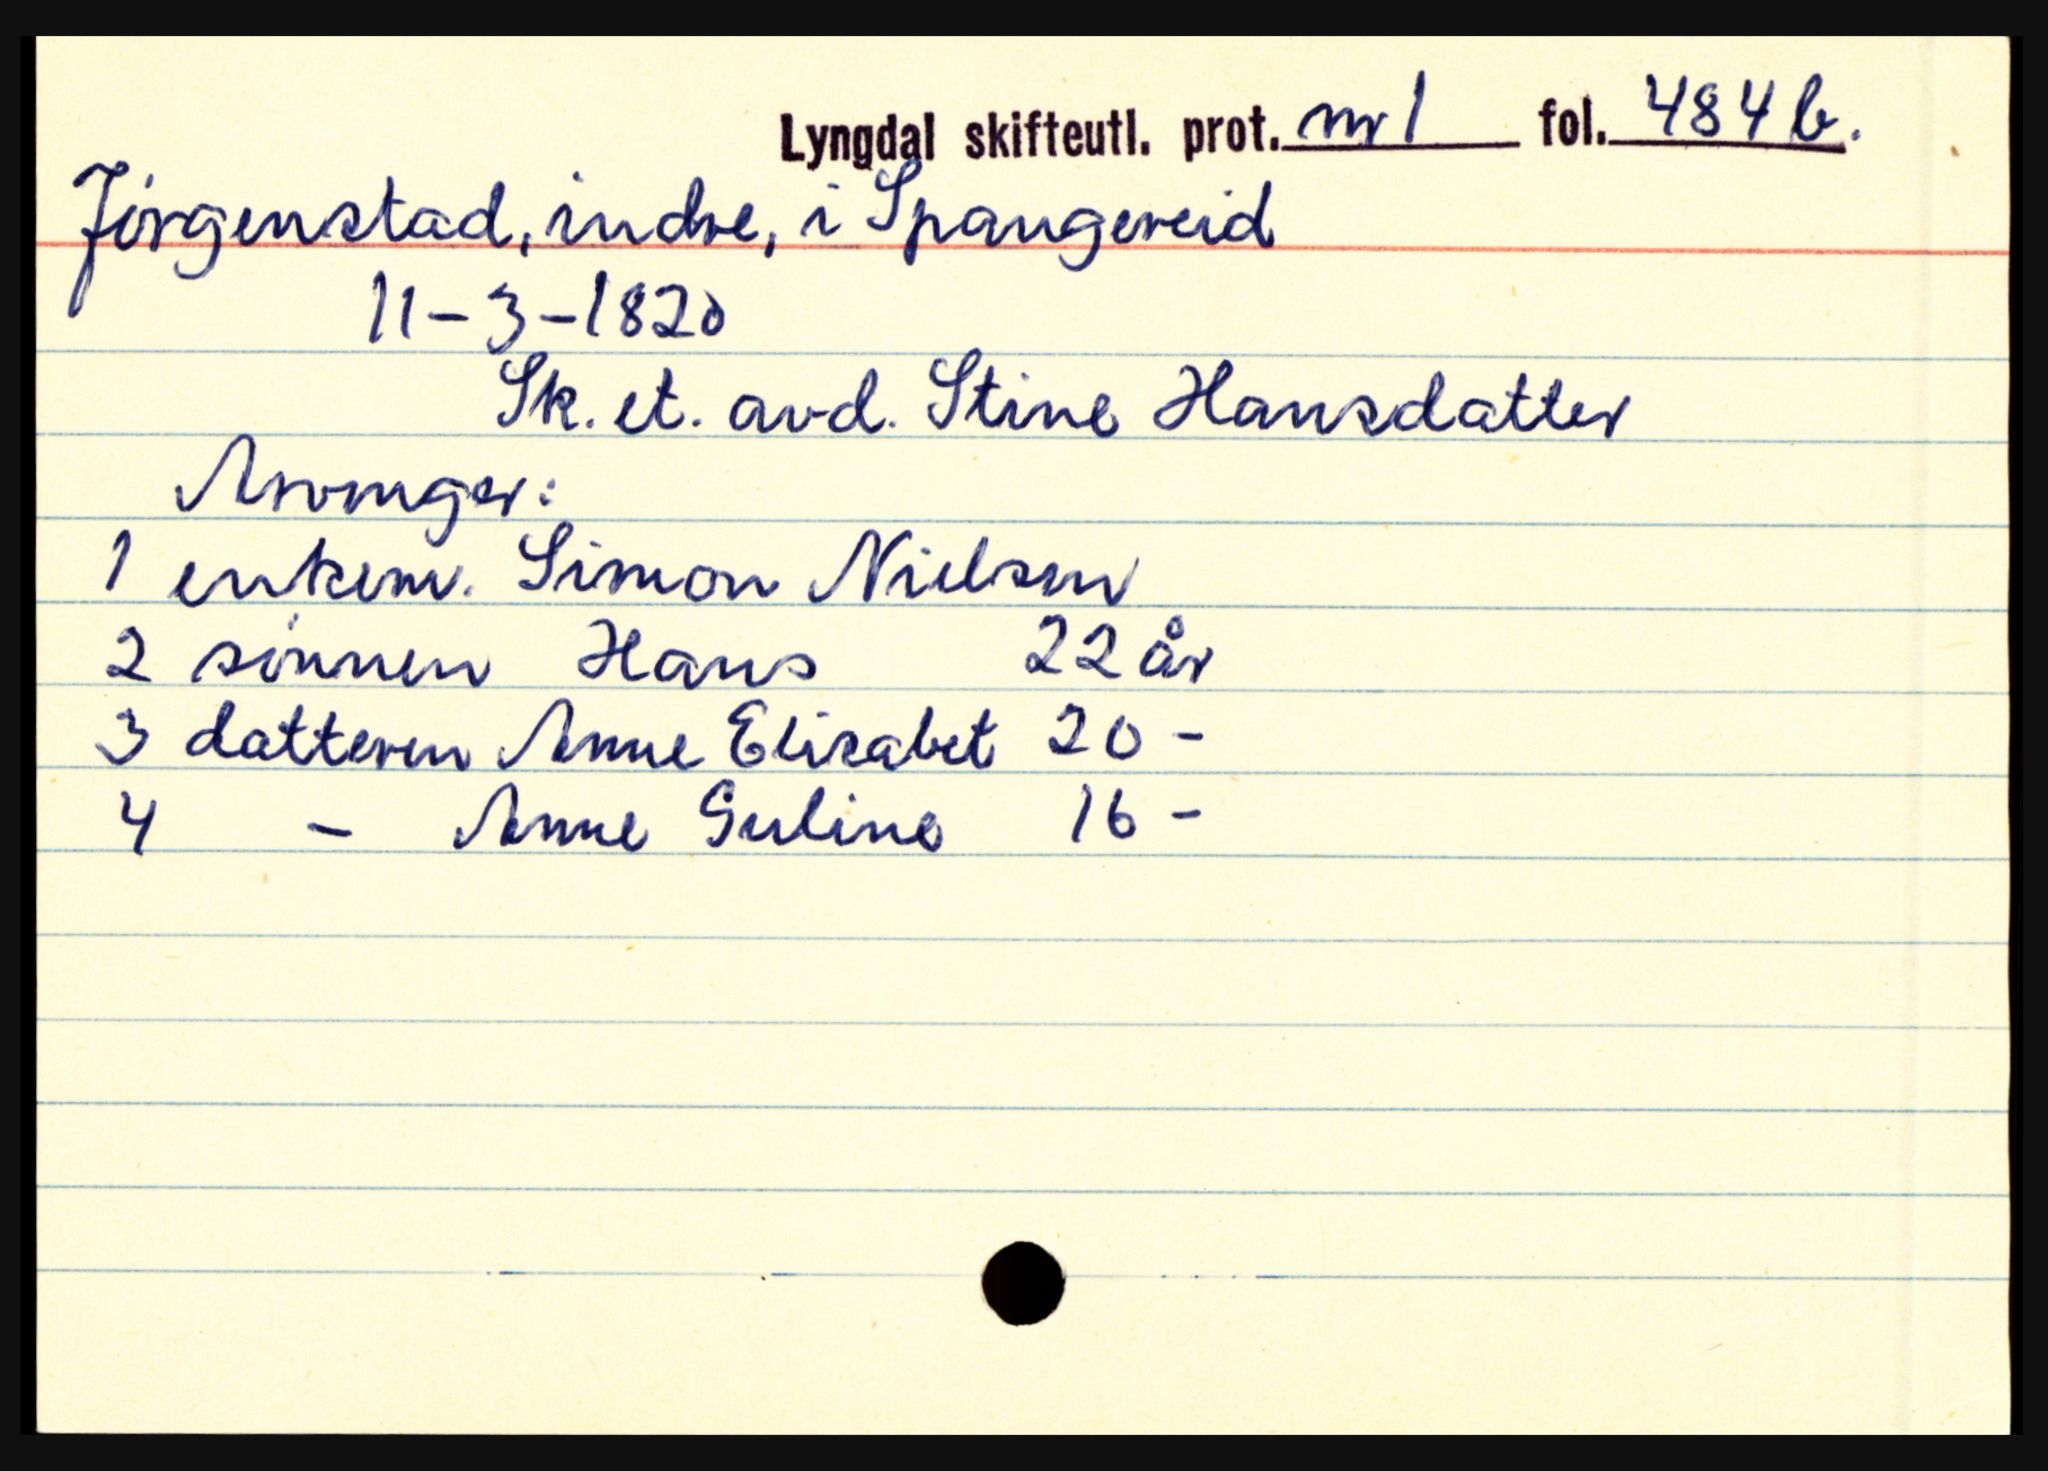 Lyngdal skifteutl. prot. nr 1 fol. 484 b.
Jørgenstad, indre, i Spangereid
11-3-1820
Sk. et. avd. Stine Hansdatter
Arvinger:
1 enkem. Simon Nielsen
2 sønnen Hans 22 år
3 datteren Anne Elisabet 20 -
4 - Anne Guline 16 -